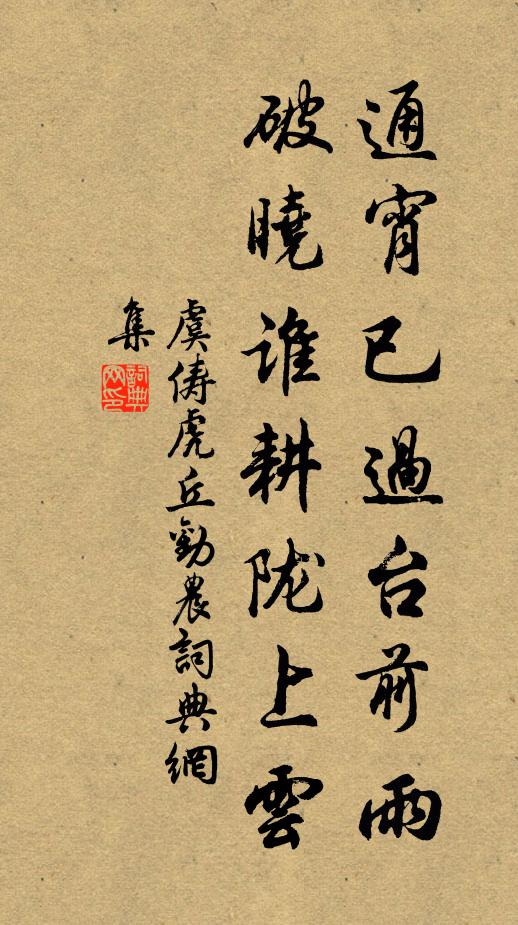 通宵已過台前雨
破曉谁耕陇上雲
虞儔虎丘勸農詞典網
集
詞典網印